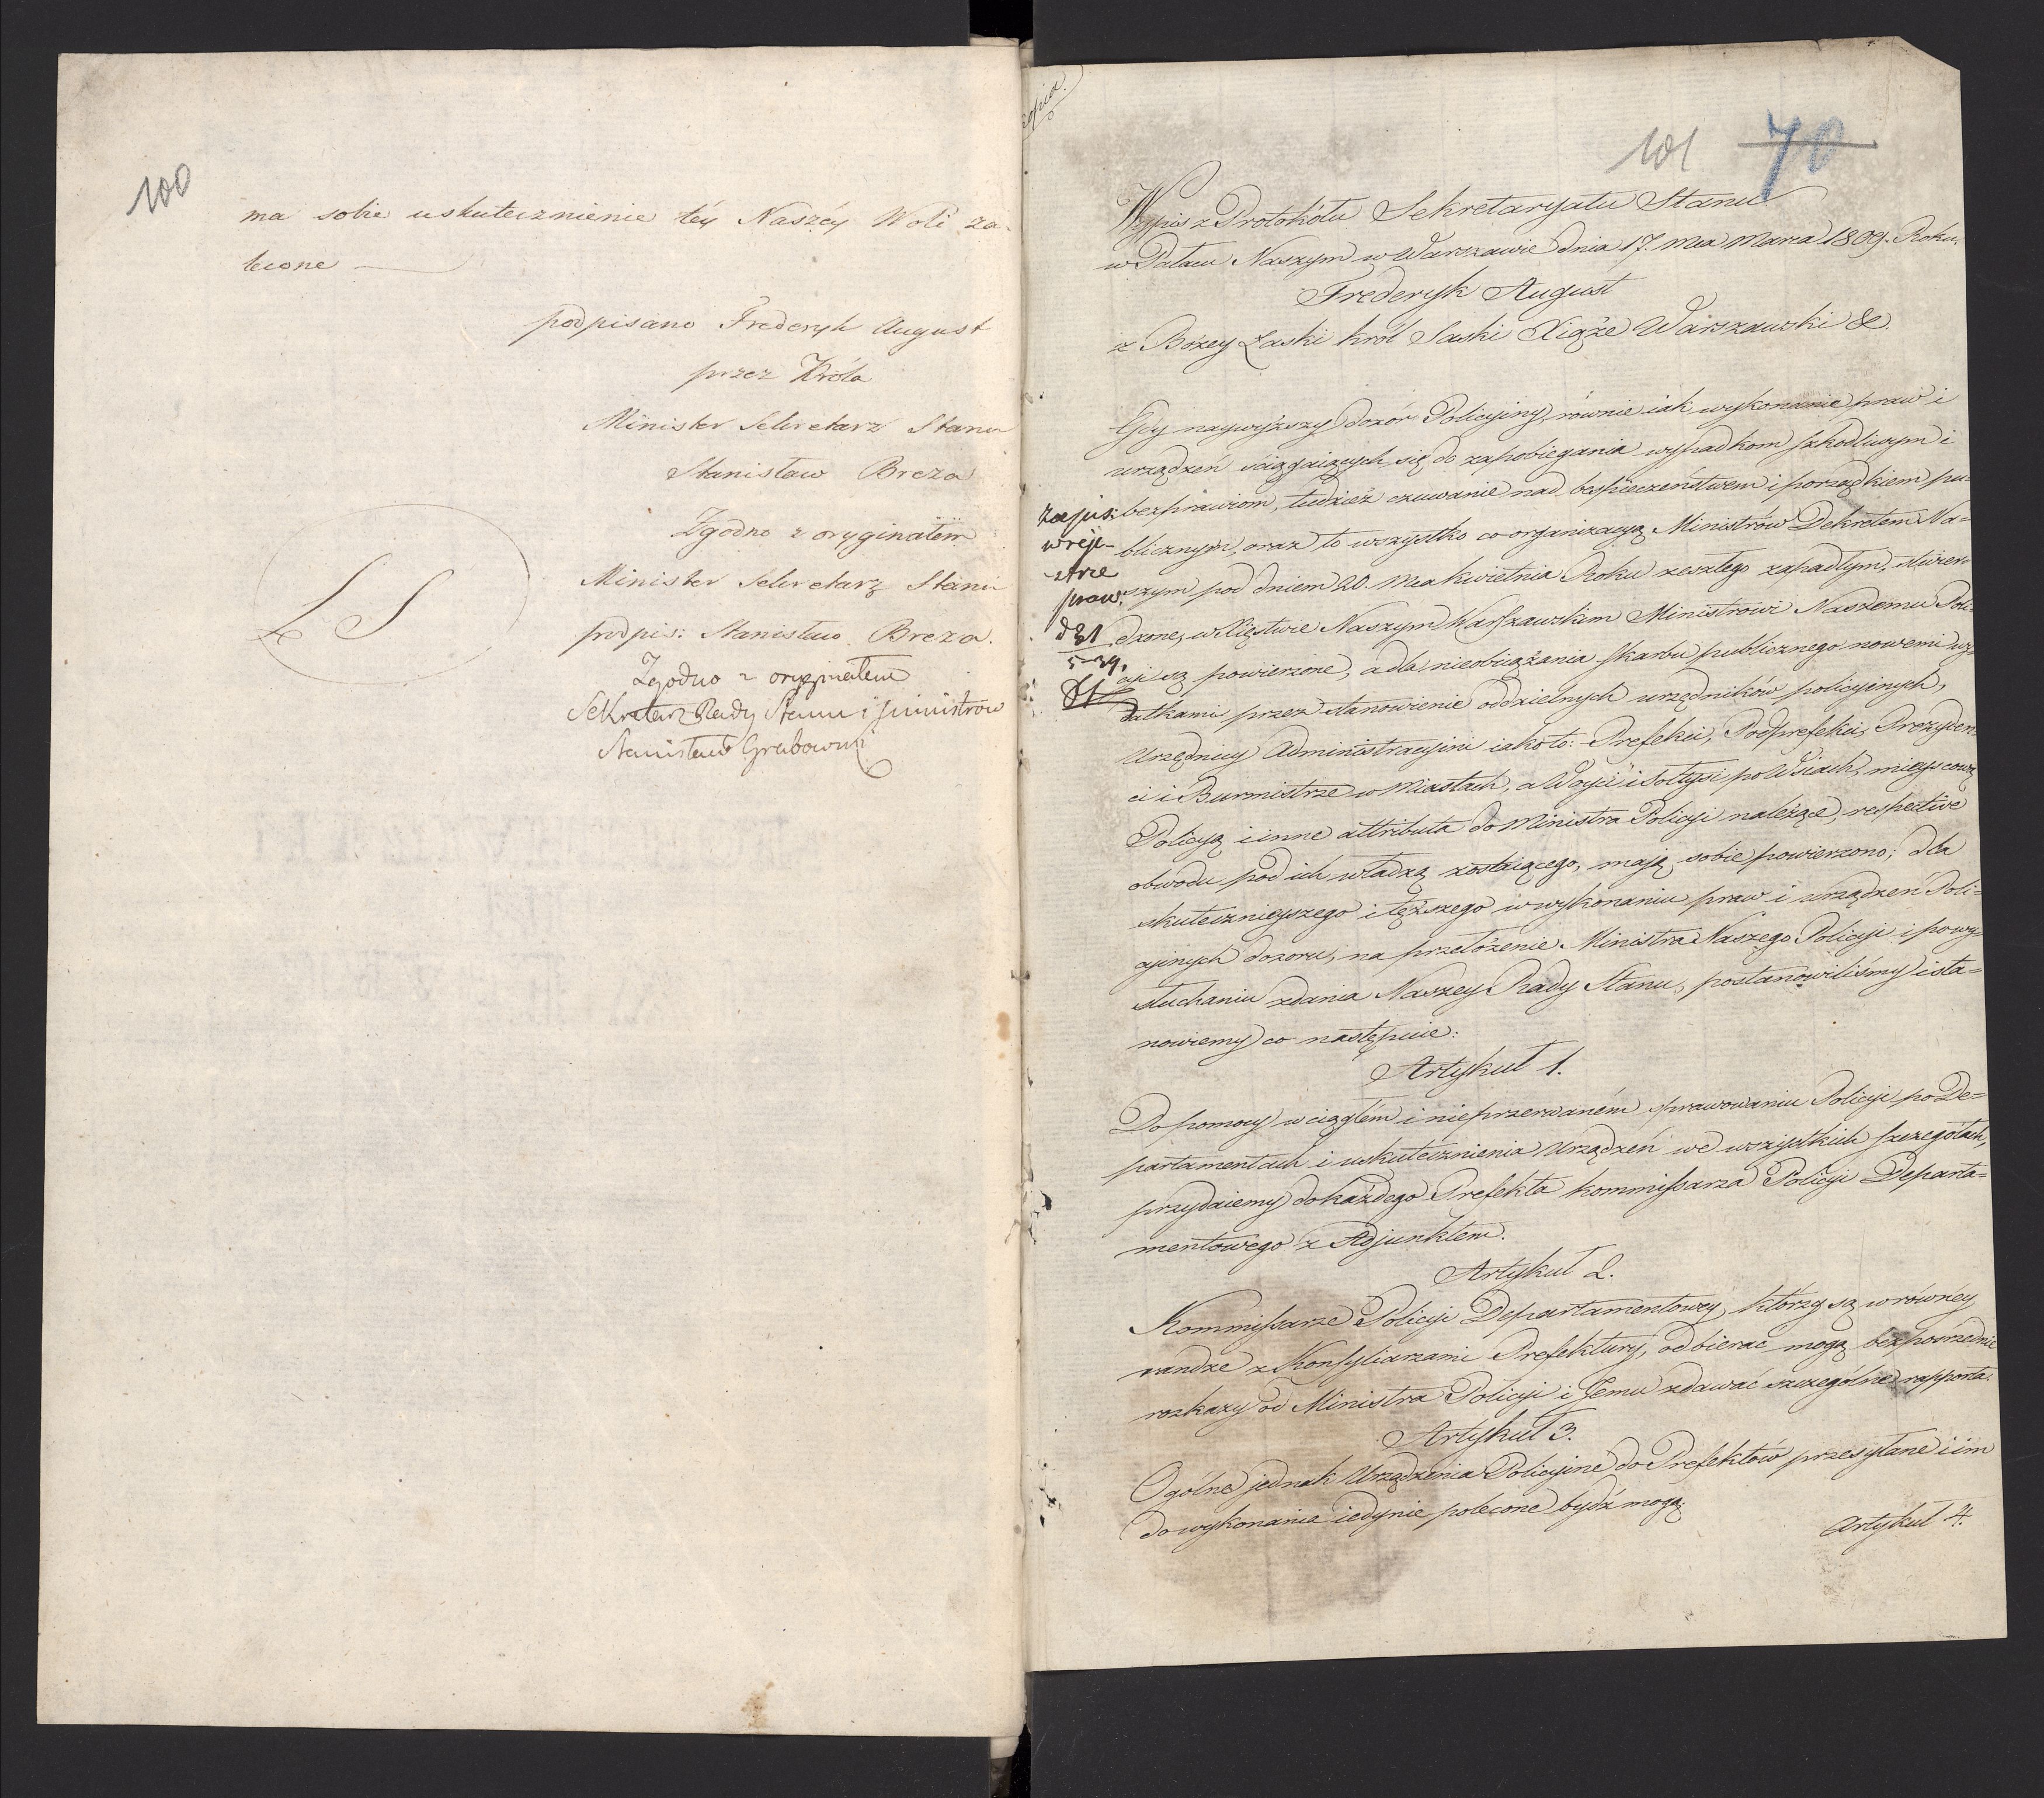 100
ma sobie uskutecznienie téy Naszéy Woli za-
lecone
podpisano Frederyk August
przez Króla
Minister Sekretarz Stanu
Stanisław Breza
Zgodno z oryginałem
Minister Sekretarz Stanu
podpis: Stanisław Breza.
L S
Zgodno z oryginałem
Sekretarz Rady Stanu i Ministrów
Stanisław Grabowski
101 70
Wypis z Protokółu Sekretaryatu Stanu
w Pałacu Naszym w Warszawie dnia 17. Mca Marca 1809. Roku.
Frederyk August
z Bożey Łaski Król Saski Xiąże Warszawski &c.
Gdy naywyższy dozór Policyiny, równie iak wykonanie praw i
urządzeń ściągaiących się do zapobiegania wypadkom szkodliwym i
bezprawiom, tudzież czuwanie nad bezpieczeństwem i porządkiem pu-
blicznym, oraz to wszystko co organizacyą Ministrów Dekretem Na=
szym pod dniem 20. Mca Kwietnia Roku zeszłego zapadłym, stwier-
dzone, w Xięstwie Naszym Warszawskim Ministrowi Naszemu Poli-
cyi są powierzone, a dla nieobciążania skarbu publicznego nowemi wy-
datkami przez stanowienie oddzielnych urzędników policyinych,
Urzędnicy Administracyini iako to: Prefekci, Podprefekci, Prezyden-
ci i Burmistrze w Miastach, a Woyci i Sołtysi po Wsiach, mieyscową
Policyą i inne attributa do Ministra Policyi należące, respective
obwodu pod ich władzą zostaiącego, maią sobie powierzono; dla
skutecznieyszego i tęższego w wykonaniu praw i urządzeń Poli=
cyinych dozoru, na przełożenie Ministra Naszego Policyi i powy=
słuchaniu zdania Naszey Rady Stanu, postanowiliśmy i sta=
nowiemy co następuie:
Artykuł 1.
Do pomocy w ciągłem i nieprzerwaném sprawowaniu Policyi po De=
partamentach i uskutecznienia Urządzeń we wszystkich szczegółach,
przydaiemy do każdego Prefekta Kommissarza Policyi Departa=
mentowego z Adjunktem.
Artykuł 2.
Kommissarze Policyi Departamentowey, którzy są w równéy
randze z Konsyliarzami Prefektury, odbierać mogą bezpośrednie
rozkazy od Ministra Policyi i Jemu zdawać szczególne rapporta.
Artykuł 3.
Ogólne jednak Urządzenia Policyine do Prefektów przesyłane i im
do wykonania iedynie polecone bydź mogą.
Artykuł 4.
zapis:
w reje-
strze
praw:
d 21
5 39.